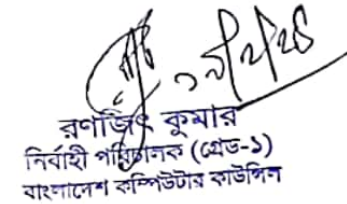 রণজিৎ কুমার
নির্বাহী পরিচালক (গ্রেড-১)
বাংলাদেশ কম্পিউটার কাউন্সিল